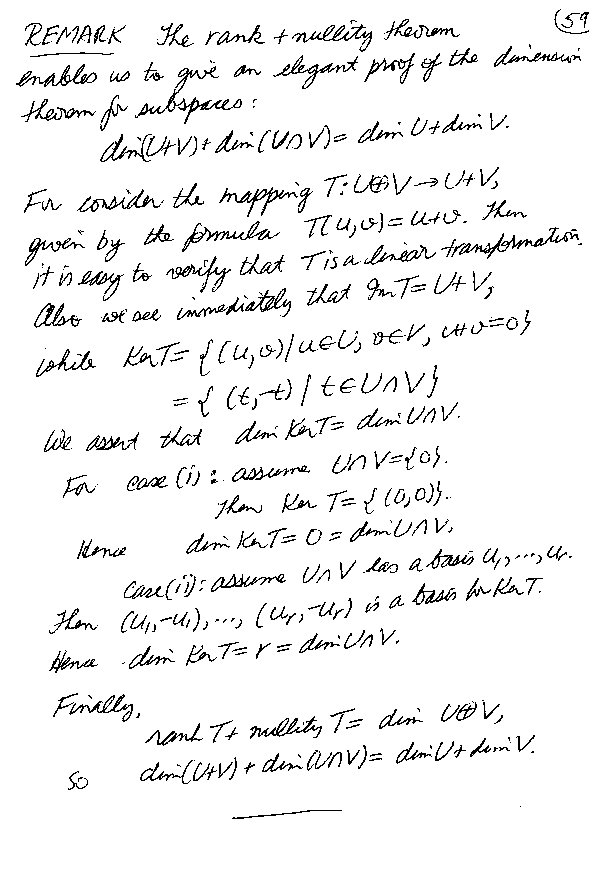 59
REMARK The rank + nullity theorem
enables us to give an elegant proof of the dimension
theorem for subspaces:
dim(U+V) + dim(U∩V) = dim U + dim V.
For consider the mapping T: U⊕V → U+V,
given by the formula T(u,v) = u+v. Then
it is easy to verify that T is a linear transformation.
Also we see immediately that Im T = U+V,
while Ker T = {(u,v) | u∈U, v∈V, u+v=0}
= {(t,-t) | t∈U∩V}
We assert that dim Ker T = dim U∩V.
For case (i): assume U∩V={0}.
Then Ker T = {(0,0)}.
Hence dim Ker T = 0 = dim U∩V,
case (ii): assume U∩V has a basis u₁,...,uᵣ.
Then (u₁,-u₁),..., (uᵣ,-uᵣ) is a basis for Ker T.
Hence dim Ker T = r = dim U∩V.
Finally,
rank T + nullity T = dim U⊕V,
So dim(U+V) + dim(U∩V) = dim U + dim V.